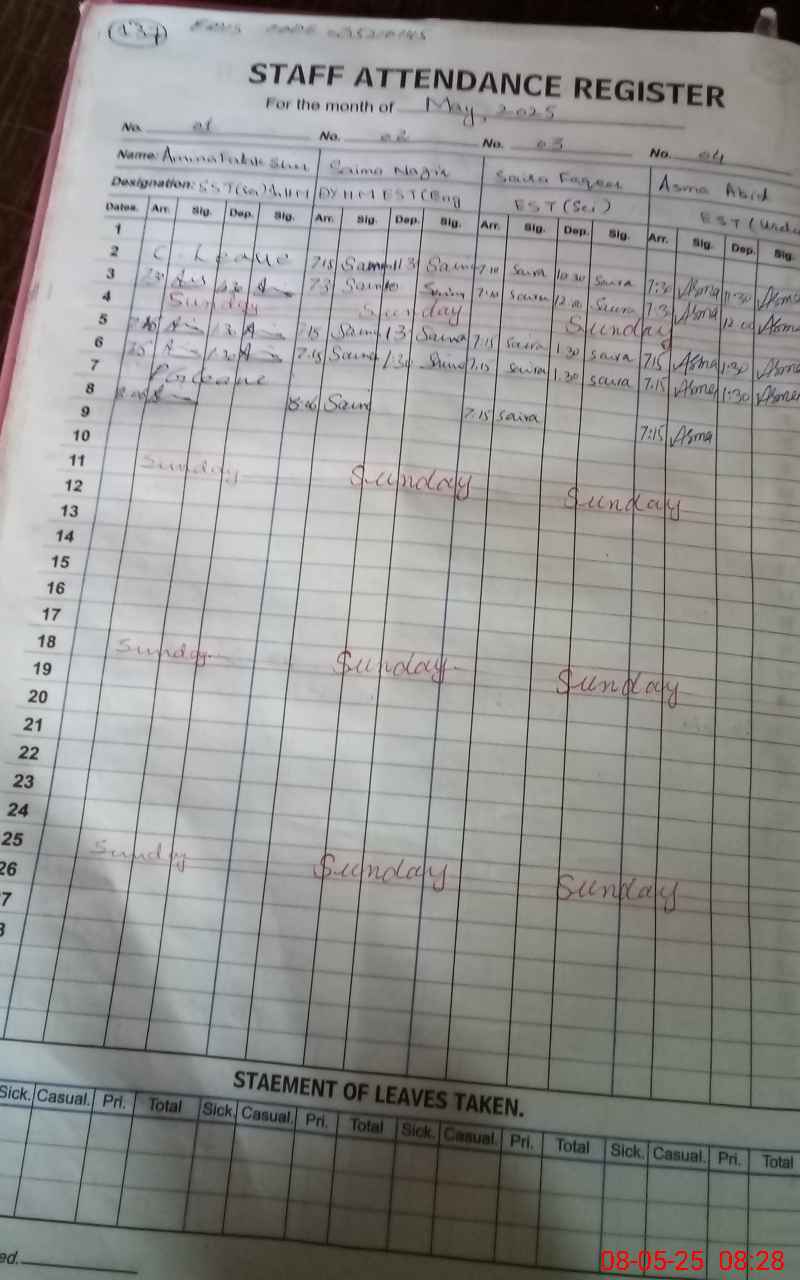 (137) EMIS CODE
STAFF ATTENDANCE REGISTER
For the month of May, 2025
No. 01 No. 02 No. 03 No. 04
Name: Amina Saima Nazir Saira Faqeer Asma Abid
Designation: SST(Sci) DY HM EST(Eng EST(Sci) EST(Urdu
Dates. Arr. Sig. Dep. Sig. Arr. Sig. Dep. Sig. Arr. Sig. Dep. Sig. Arr. Sig. Dep. Sig.
1
2 C. Leave 7:15 Saima 7:10 saira 10:30 saira 7:30 Asma 11:30 Asma
3 7:30 saira 12:00 Saira 7:3 Asma 12:00 Asma
4 Sunday Sunday Sunday
5 7:15 Saima 1:3 Saima 7:15 saira 1:30 saira 7:15 Asma 1:30 Asma
6 7:15 Saima 1:30 7:15 saira 1:30 saira 7:15 Asma 1:30 Asma
7
8 Saim 7:15 saira 7:15 Asma
9
10
11 Sunday Sunday Sunday
12
13
14
15
16
17
18 Sunday Sunday Sunday
19
20
21
22
23
24
25 Sunday Sunday Sunday
26
7
STAEMENT OF LEAVES TAKEN.
Sick. Casual. Pri. Total Sick. Casual. Pri. Total Sick. Casual. Pri. Total Sick. Casual. Pri. Total
ed.
08-05-25 08:28